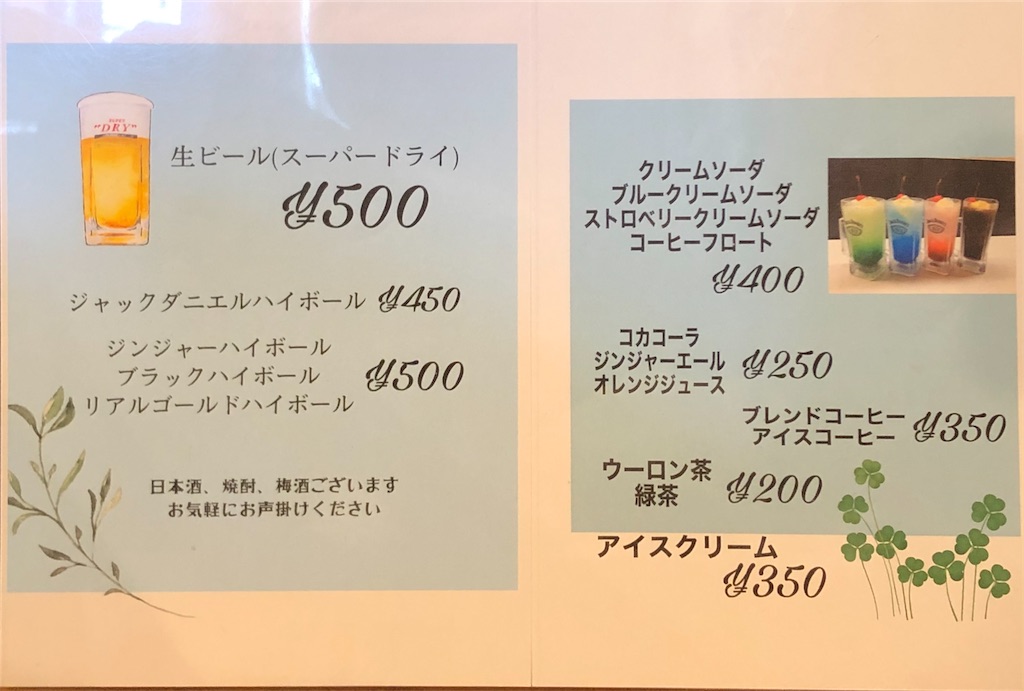 SUPER
"DRY"
生ビール(スーパードライ)
¥500
ジャックダニエルハイボール ¥450
ジンジャーハイボール
ブラックハイボール ¥500
リアルゴールドハイボール
日本酒、焼酎、梅酒ございます
お気軽にお声掛けください
クリームソーダ
ブルークリームソーダ
ストロベリークリームソーダ
コーヒーフロート
¥400
コカコーラ
ジンジャーエール ¥250
オレンジジュース
ブレンドコーヒー
アイスコーヒー ¥350
ウーロン茶
緑茶 ¥200
アイスクリーム
¥350